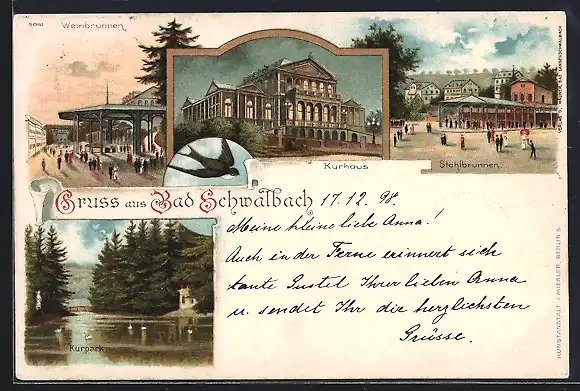 5061
Weinbrunnen
Kurhaus
Stahlbrunnen.
Gruss aus Bad Schwalbach
17.12.98.
Meine kleine liebe Anna!
Auch in der Ferne erinnert sich
tante Gustel Ihrer lieben Anna
u. sendet Ihr die herzlichsten
Grüsse.
Kurpark
KUNSTANSTALT J. MIESLER, BERLIN S.